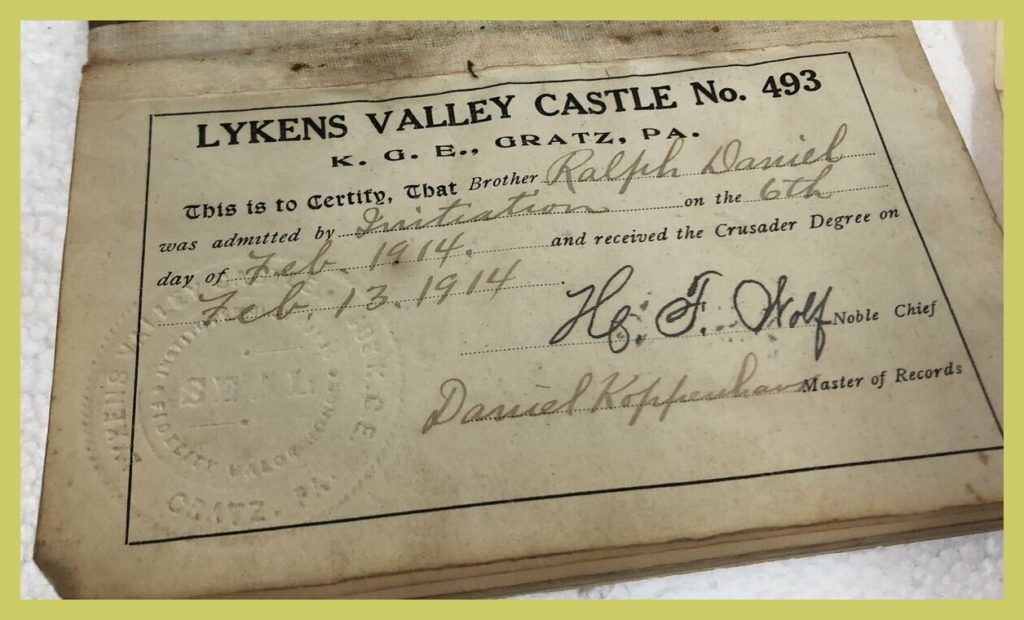 LYKENS VALLEY CASTLE No. 493
K. G. E., GRATZ, PA.
This is to Certify, That Brother Ralph Daniel
was admitted by Initiation on the 6th
day of Feb. 1914. and received the Crusader Degree on
Feb. 13. 1914
H. F. Wolf Noble Chief
Daniel Koppenhaver Master of Records
SEAL
FIDELITY VALOR
GRATZ, PA.